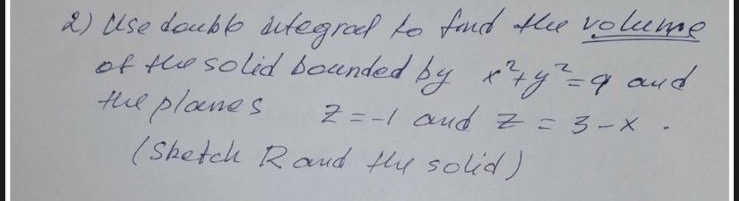 2) Use double integral to find the volume
of the solid bounded by x²+y²=9 and
the planes z=-1 and z=3-x.
(Sketch R and the solid)